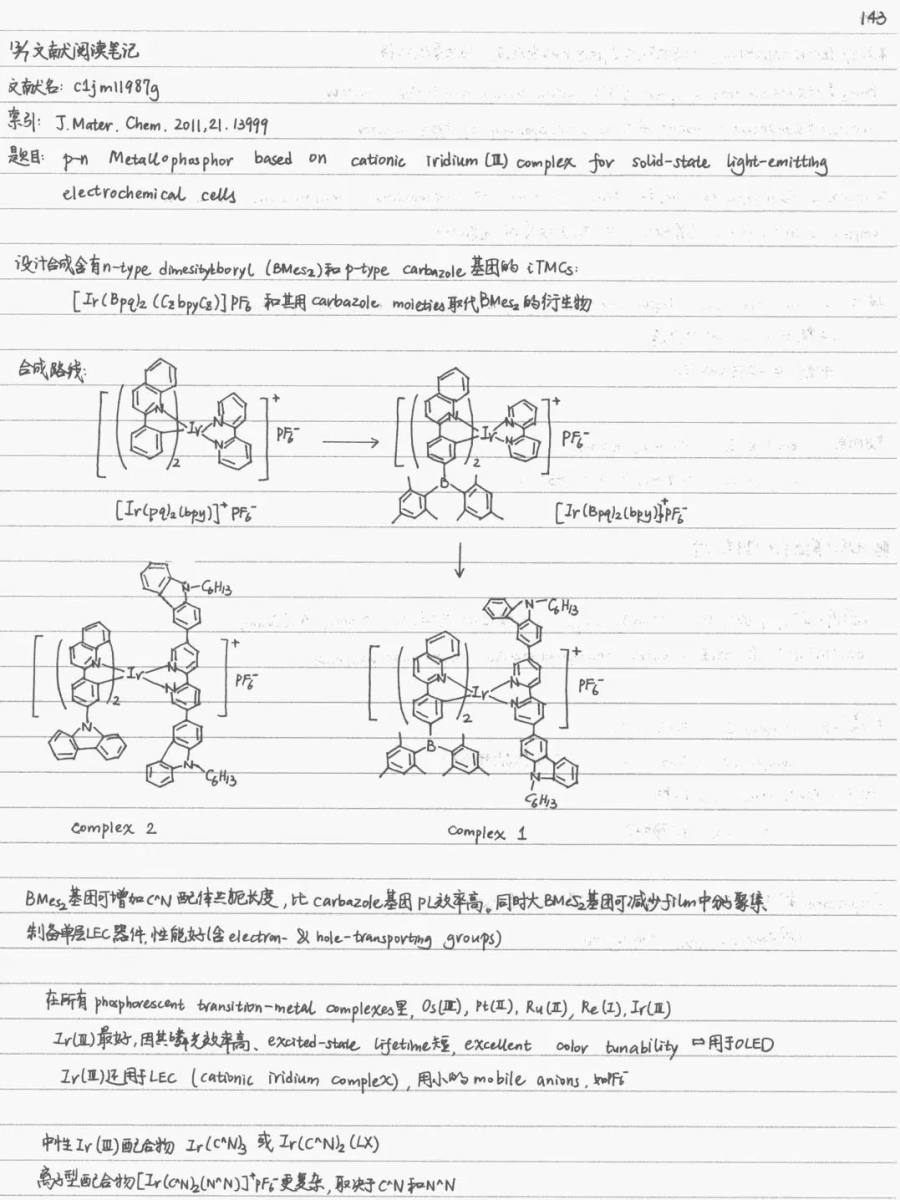 143
131 文献阅读笔记
文献名: c1jm11987g
索引: J. Mater. Chem. 2011, 21. 13999
题目: p-n Metallophosphor based on cationic Iridium (III) complex for solid-state light-emitting
electrochemical cells
设计合成含有n-type dimesitylboryl (BMes₂)和p-type carbazole基团的iTMCs:
[Ir(Bpq)₂(CzbpyCz)]PF₆ 和其用carbazole moieties取代BMes₂的衍生物
合成路线:
[Ir(pq)₂(bpy)]⁺PF₆⁻
[Ir(Bpq)₂(bpy)]⁺PF₆⁻
N Ir N N 2 + PF₆⁻
N Ir N N 2 B + PF₆⁻
N-C₆H₁₃ N Ir N N 2 N N-C₆H₁₃ + PF₆⁻
N-C₆H₁₃ N Ir N N 2 B N C₆H₁₃ + PF₆⁻
Complex 2
Complex 1
BMes₂基团可增加C^N配体共轭长度,比carbazole基团PL效率高。同时大BMes₂基团可减少film中分子聚集
制备单层LEC器件,性能好(含electron- & hole-transporting groups)
在所有phosphorescent transition-metal complexes里, Os(II), Pt(II), Ru(II), Re(I), Ir(III)
Ir(III)最好,因其磷光效率高、excited-state lifetime短, excellent color tunability ⇨用于OLED
Ir(III)还用于LEC (cationic iridium complex), 用小的mobile anions, 如PF₆⁻
中性Ir(III)配合物 Ir(C^N)₃ 或 Ir(C^N)₂(LX)
离子型配合物[Ir(C^N)₂(N^N)]⁺PF₆⁻更复杂, 取决于C^N和N^N